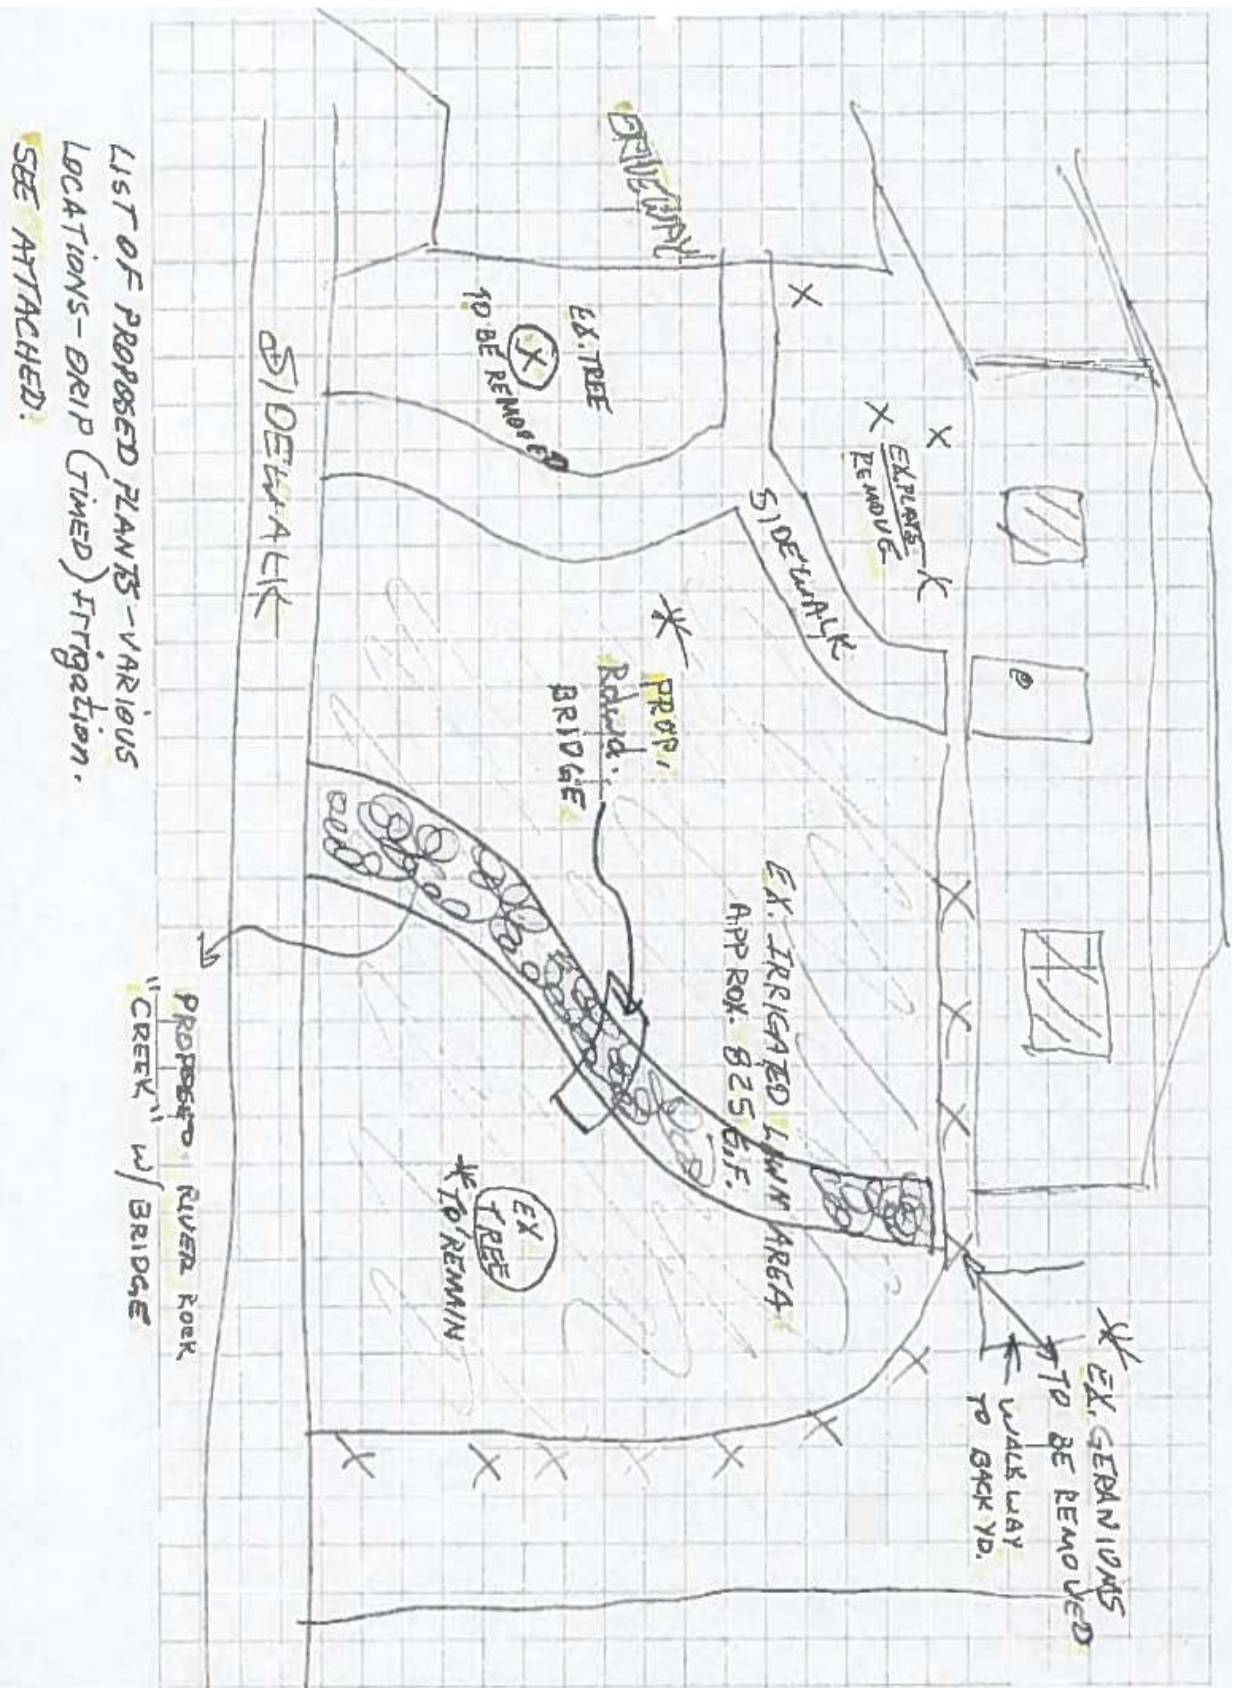 DRIVEWAY
EX. TREE
TO BE REMOVED
EX. PLANTS
REMOVE
SIDEWALK
SIDEWALK
PROP.
BRIDGE
EX. IRRIGATED LAWN AREA
APPROX. 825 S.F.
EX
TREE
* TO REMAIN
* EX. GERANIUMS
TO BE REMOVED
WALKWAY
TO BACK YD.
PROPOSED RIVER ROCK
"CREEK" W/ BRIDGE
LIST OF PROPOSED PLANTS - VARIOUS
LOCATIONS - DRIP (TIMED) Irrigation.
SEE ATTACHED.